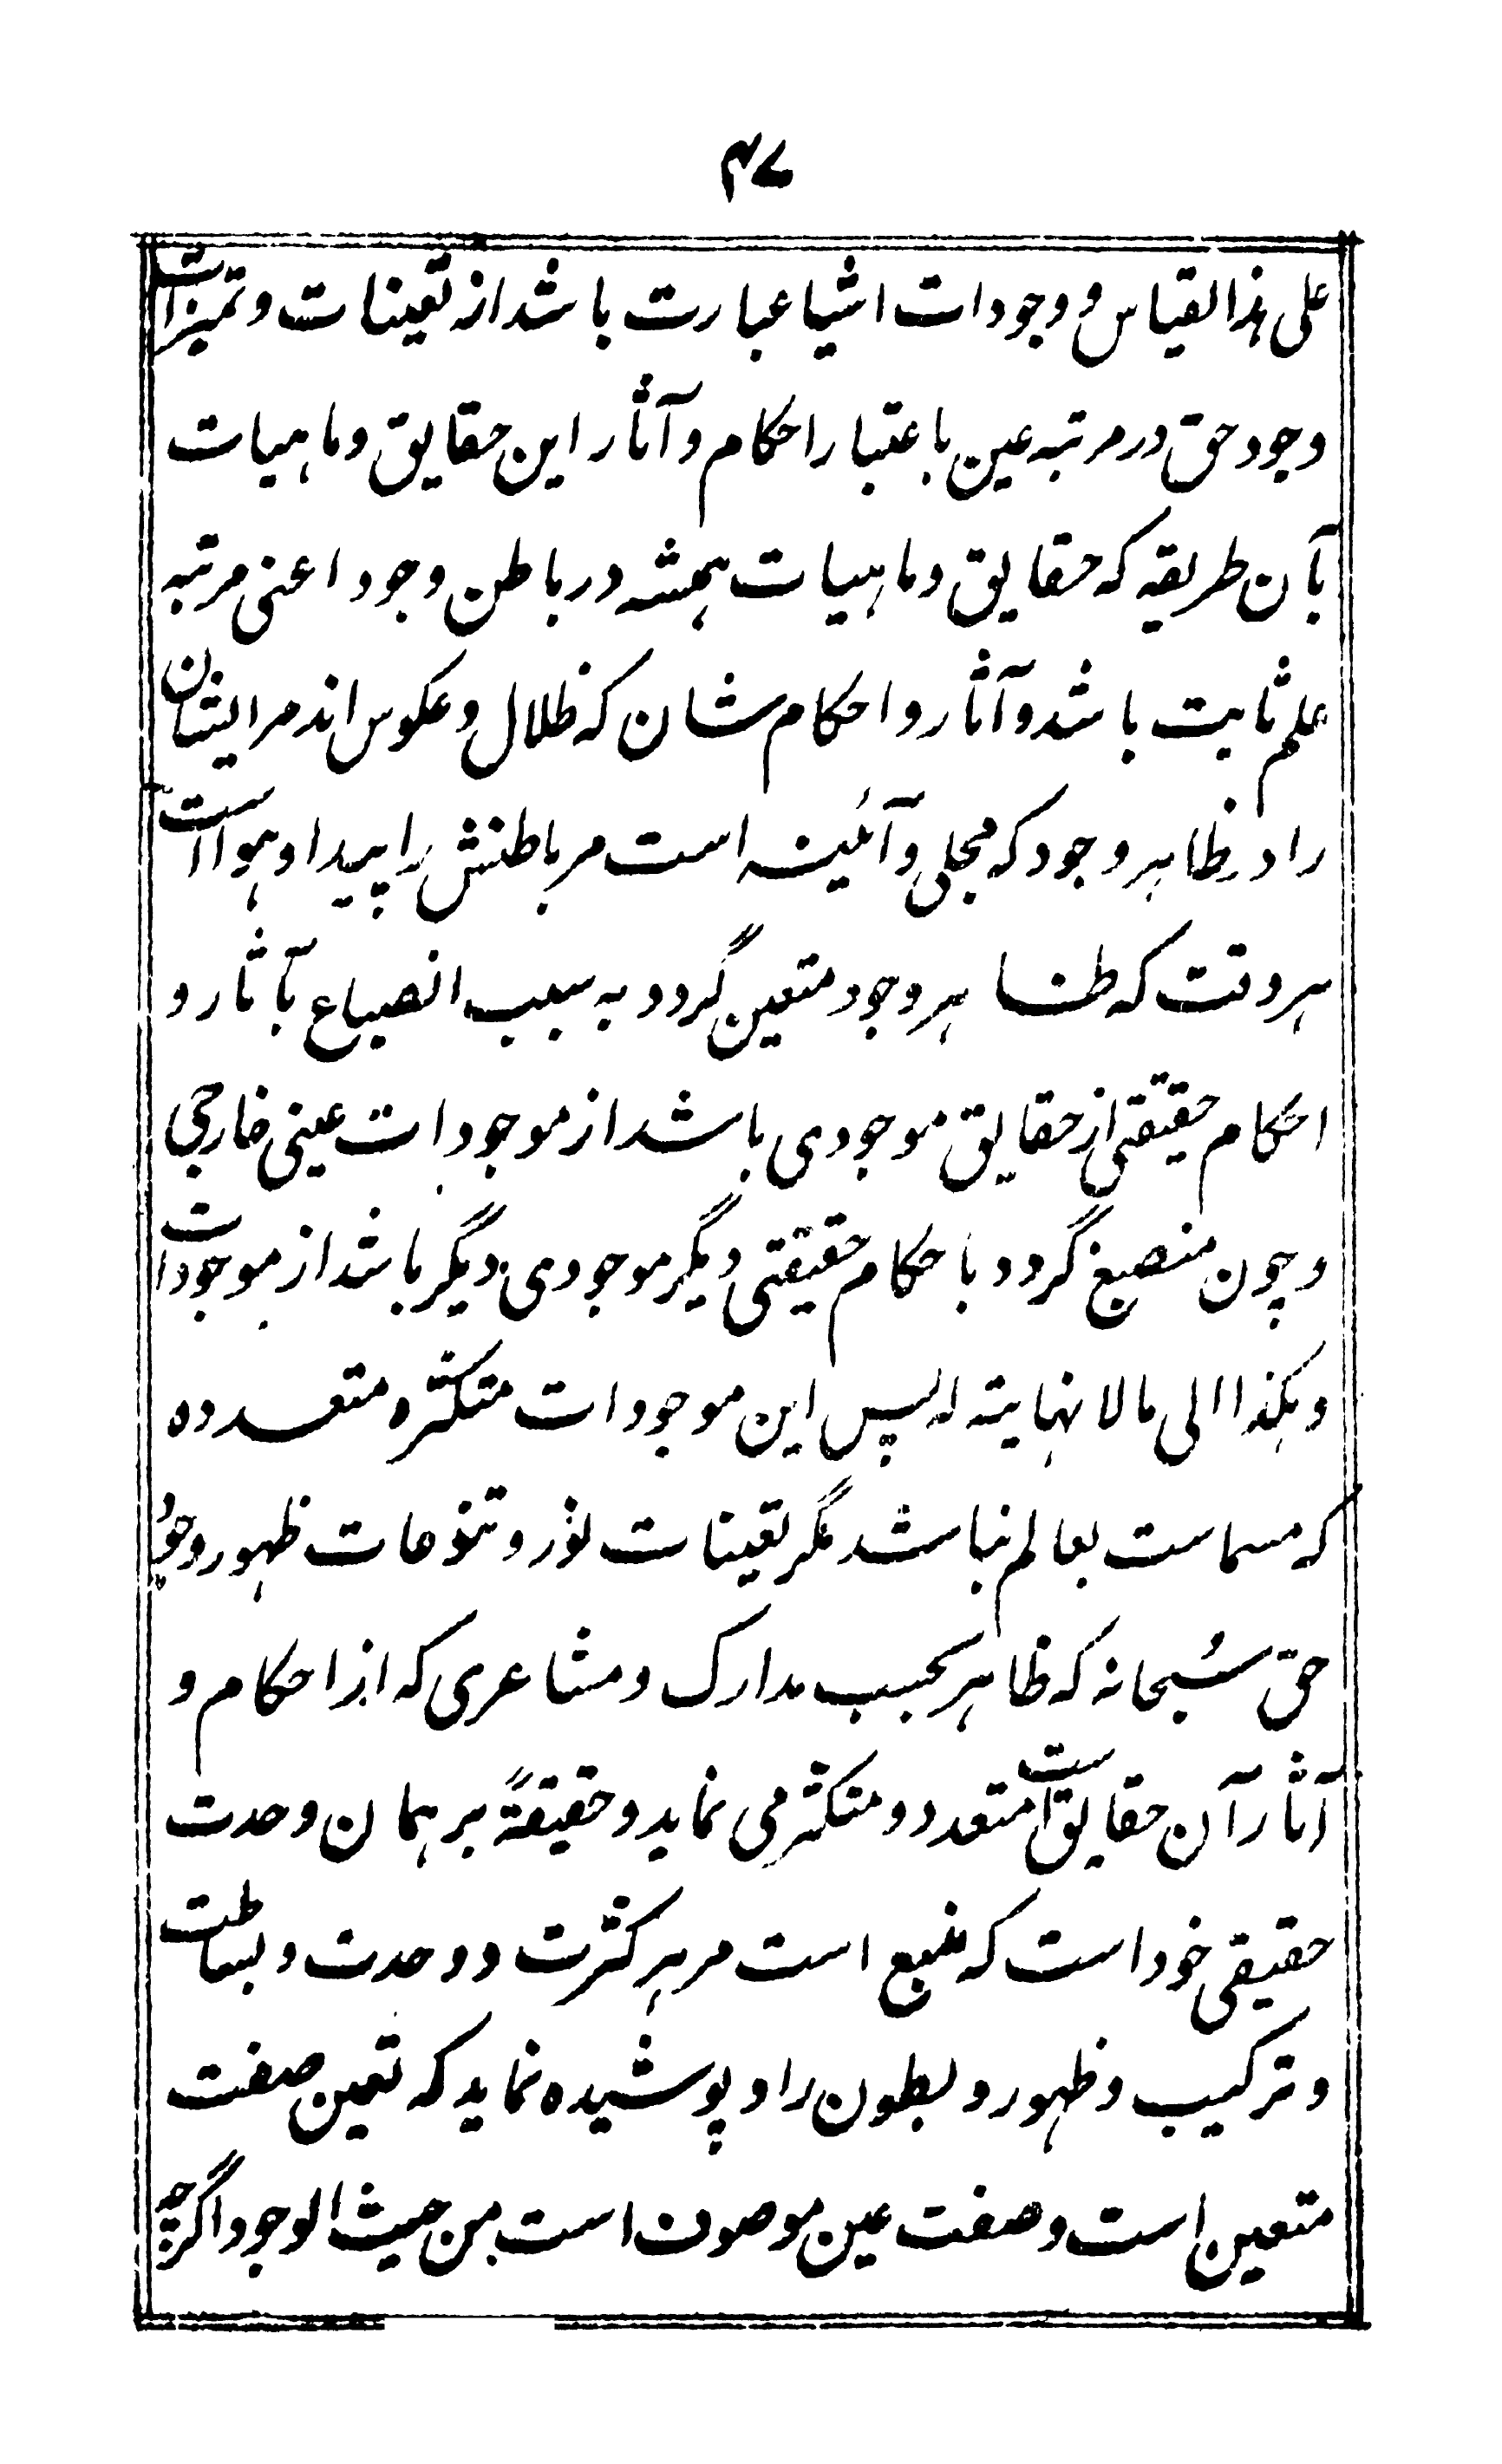 ۴۷
علی ہذا القیاس و وجودات اشیا عبارت باشد از تعینات و تمیزات
وجود حق در مرتبہ عین باعتبار احکام و آثار این حقایق و ماہیات
بآن طریقہ کہ حقایق و ماہیات ہمیشہ در باطن وجود اعنی مرتبہ
علم ثابت باشد و آثار و احکام شان کہ ظلال و عکوس اند مر ایشان
را در ظاہر وجود کہ مجلی و آئینہ است مر باطنش را پیدا و ہوا است
ہر وقت کہ ظاہر وجود متعین گردد بہ سبب انصباع بآثار و
احکام حقیقتی از حقایق موجودی باشد از موجودات عینی خارجی
و چون منصبغ گردد باحکام حقیقتی دیگر موجودی دیگر باشد از موجودات
و ہکذا الی مالا نہایتہ لہ پس این موجودات متکثرہ متعددہ
کہ مسماست بعالم نباشد مگر تعینات نور و تنوعات ظہور وجود
حق سبحانہ کہ ظاہر بحسب مدارک و مشاعری کہ از احکام و
آثار آن حقایق است متعدد و متکثر می نماید و حقیقۃً بر ہمان وحدت
حقیقی خود است کہ منبع است مر ہر کثرت و وحدت و بساطت
و ترکیب و ظہور و بطون را و پوشیدہ نماید کہ تعین صفت
متعین است و صفت عین موصوف است من حیث الوجود اگرچہ